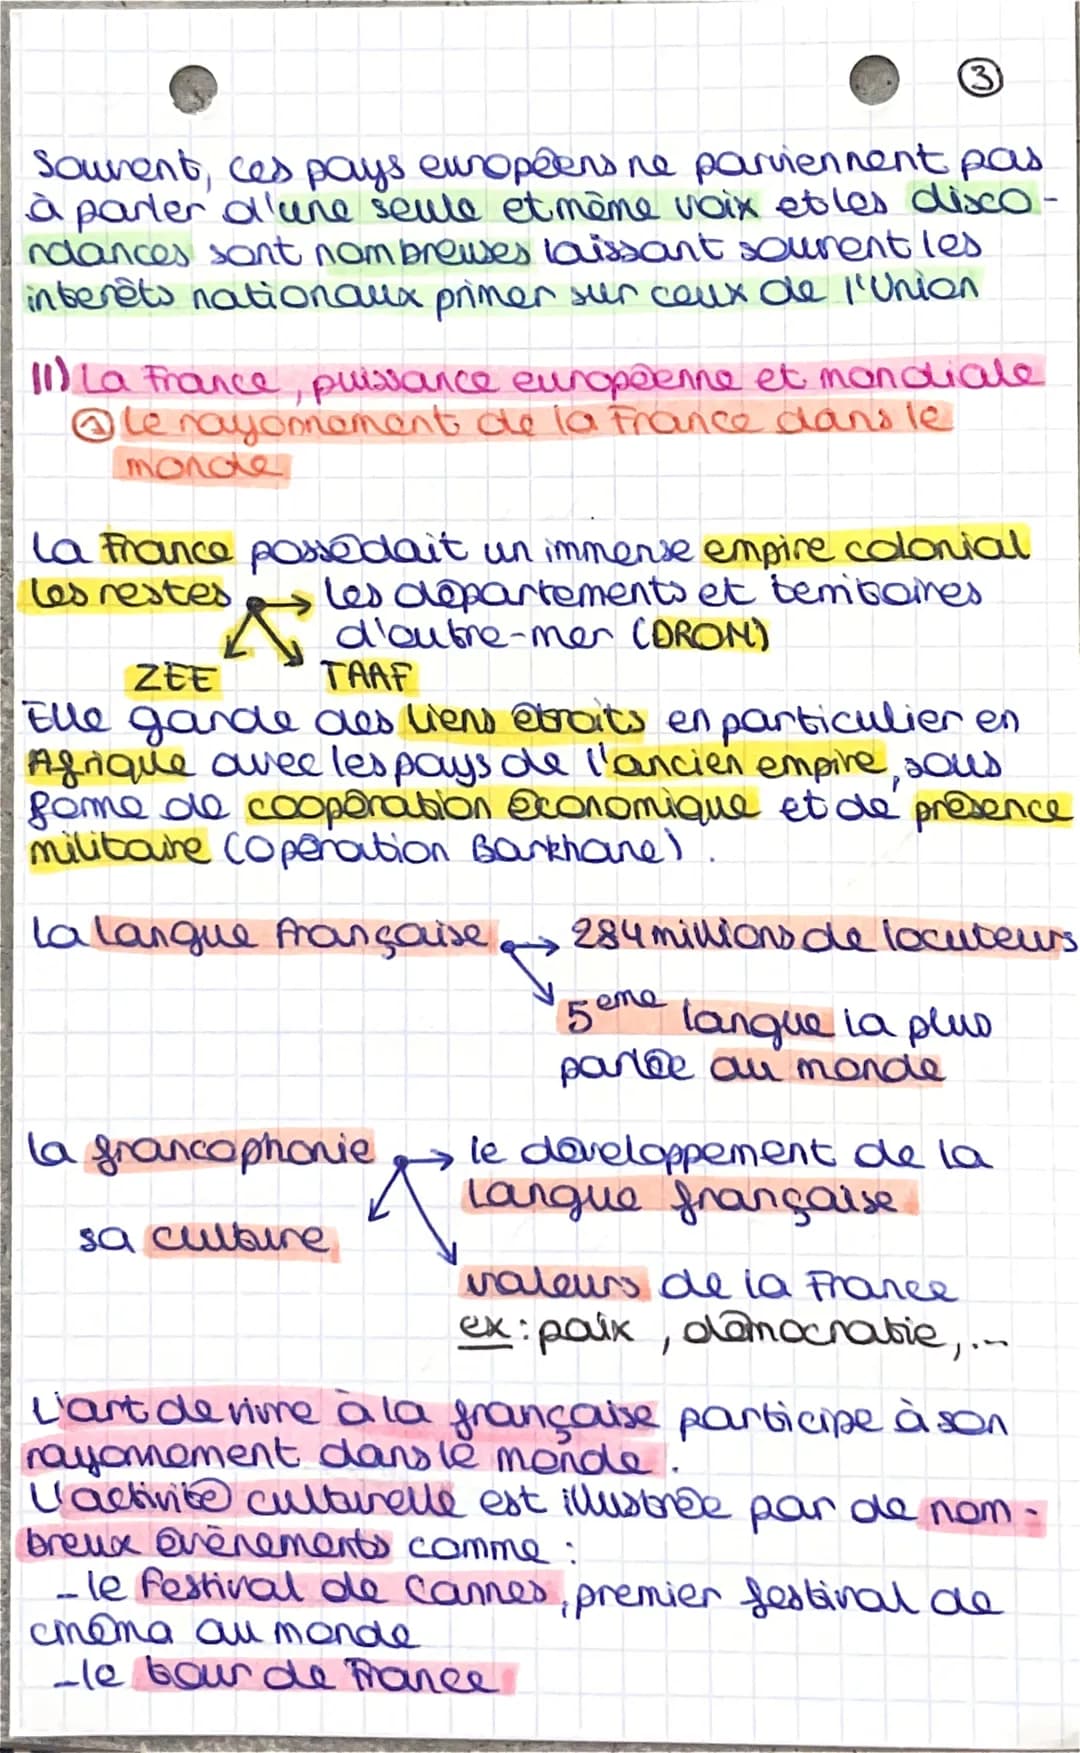 ③
Souvent, ces pays européens ne parviennent pas
à parler d'une seule et même voix et les disco-
rdances sont nombreuses laissant souvent les
interêts nationaux primer sur ceux de l'Union
II) La France, puissance européenne et mondiale
① Le rayonnement de la France dans le
monde
La France possédait un immense empire colonial
Les restes → Les départements et territoires
d'outre-mer (DROM)
ZEE TAAF
Elle garde des liens étroits en particulier en
Afrique avec les pays de l'ancien empire, sous
forme de coopération économique et de présence
militaire (opération Barkhane).
La langue française → 284 millions de locuteurs
5eme langue la plus
parlée au monde
La francophonie → le développement de la
langue française
sa culture
valeurs de la France
ex : paix, démocratie,...
L'art de vivre à la française participe à son
rayonnement dans le monde.
L'activité culturelle est illustrée par de nom-
breux évènements comme :
- le Festival de Cannes, premier festival de
cinéma au monde
- le tour de France